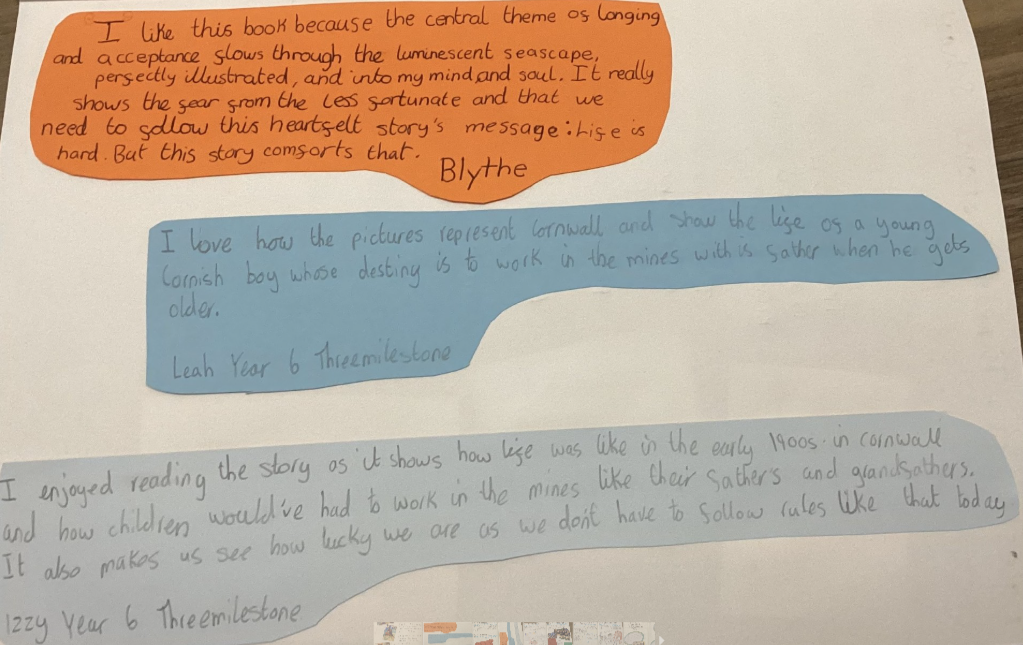 I like this book because the central theme of longing
and acceptance flows through the luminescent seascape,
perfectly illustrated, and into my mind and soul. It really
shows the fear from the less fortunate and that we
need to follow this heartfelt story's message: Life is
hard. But this story comforts that.
Blythe
I love how the pictures represent Cornwall and show the life of a young
Cornish boy whose destiny is to work in the mines with is father when he gets
older.
Leah Year 6 Threemilestone
I enjoyed reading the story as it shows how life was like in the early 1900s in cornwall
and how children would've had to work in the mines like their father's and grandfathers.
It also makes us see how lucky we are as we don't have to follow rules like that today
Izzy Year 6 Threemilestone